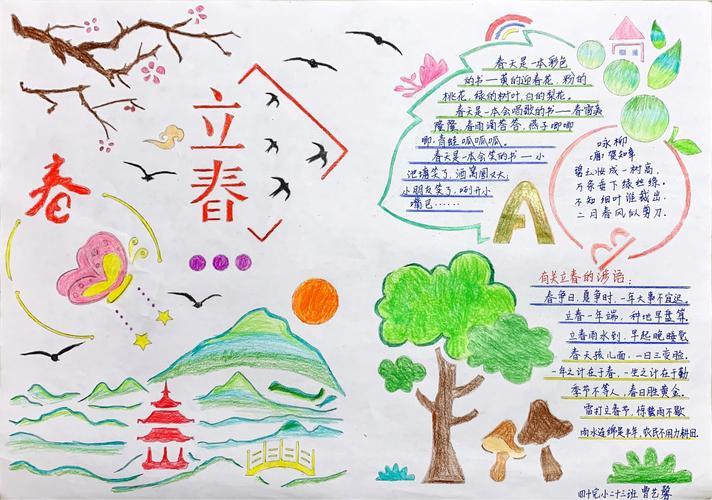 立春
春
春天是一本彩色
的书——黄的迎春花,粉的
桃花,绿的树叶,白的梨花。
春天是一本会唱歌的书——春雷轰
隆隆,春雨滴答答,燕子唧唧
唧,青蛙呱呱呱。
春天是一本会笑的书——小
池塘笑了,酒窝圆又大;
小朋友笑了,咧开小
嘴巴……
咏柳
[唐]贺知章
碧玉妆成一树高,
万条垂下绿丝绦。
不知细叶谁裁出,
二月春风似剪刀。
有关立春的谚语:
春争日,夏争时,一年大事不宜迟。
立春一年端,种地早盘算。
立春雨水到,早起晚睡觉
春天孩儿面,一日三变脸。
一年之计在于春,一生之计在于勤
季节不等人,春日胜黄金。
雷打立春节,惊蛰雨不歇
雨水连绵是丰年,农民不用力耕田.
四十完小二十三班